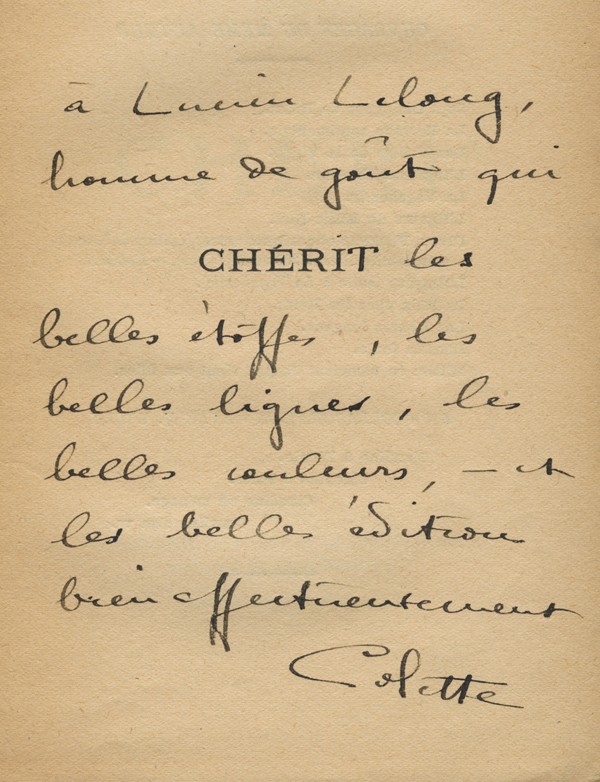 à Lucien Lelong,
homme de goût qui
CHÉRIT les
belles étoffes, les
belles lignes, les
belles couleurs, – et
les belles éditions
bien affectueusement
Colette